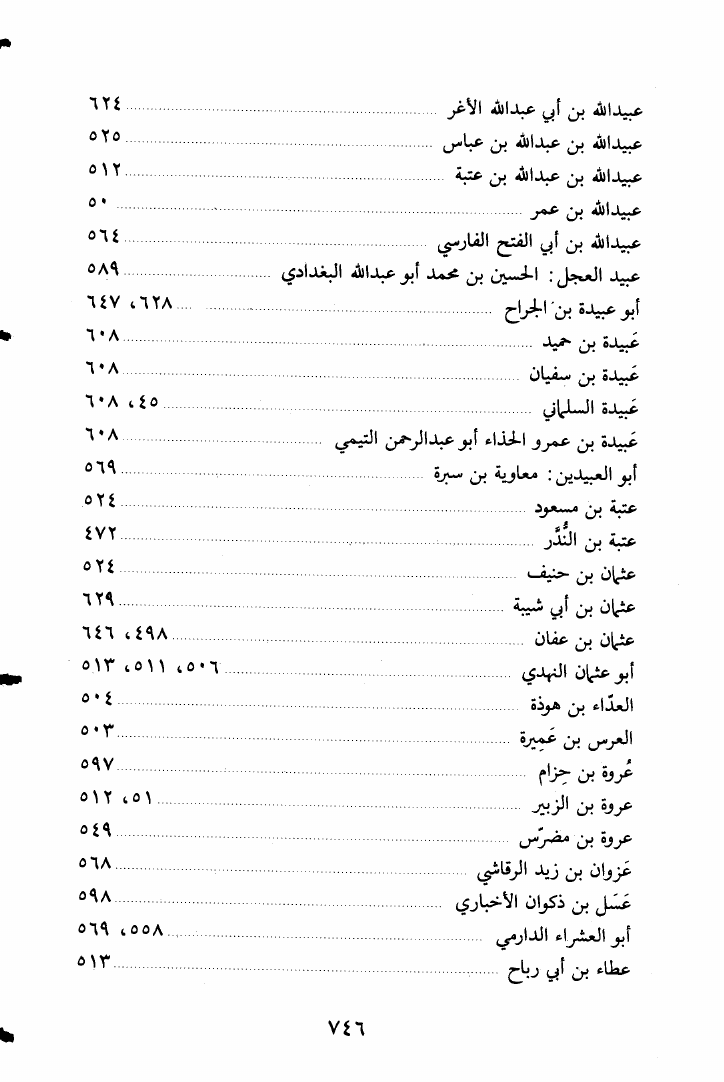 عبيدالله بن أبي عبدالله الأغر ... ٦٢٤
عبيدالله بن عبدالله بن عباس ... ٥٢٥
عبيدالله بن عبدالله بن عتبة ... ٥١٢
عبيدالله بن عمر ... ٥٠
عبيدالله بن أبي الفتح الفارسي ... ٥٦٤
عبيد العجل: الحسين بن محمد أبو عبدالله البغدادي ... ٥٨٩
أبو عبيدة بن الجراح ... ٦٢٨، ٦٤٧
عَبيدة بن حميد ... ٦٠٨
عَبيدة بن سفيان ... ٦٠٨
عَبيدة السلماني ... ٤٥، ٦٠٨
عَبيدة بن عمرو الحذاء أبو عبدالرحمن التيمي ... ٦٠٨
أبو العبيدين: معاوية بن سبرة ... ٥٦٩
عتبة بن مسعود ... ٥٢٤
عتبة بن النُّدَّر ... ٤٧٢
عثمان بن حنيف ... ٥٢٤
عثمان بن أبي شيبة ... ٦٢٩
عثمان بن عفان ... ٤٩٨، ٦٤٦
أبو عثمان النهدي ... ٥٠٦، ٥١١، ٥١٣
العدّاء بن هوذة ... ٥٠٤
العرس بن عَمِيرة ... ٥٠٣
عُروة بن حِزام ... ٥٩٧
عروة بن الزبير ... ٥١، ٥١٢
عروة بن مضرّس ... ٥٤٩
عَزوان بن زيد الرقاشي ... ٥٦٨
عَسَل بن ذكوان الأخباري ... ٥٩٨
أبو العشراء الدارمي ... ٥٥٨، ٥٦٩
عطاء بن أبي رباح ... ٥١٣
٧٤٦